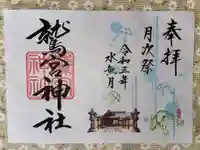 奉拝
月次祭
令和三年
水無月
鷲宮神社